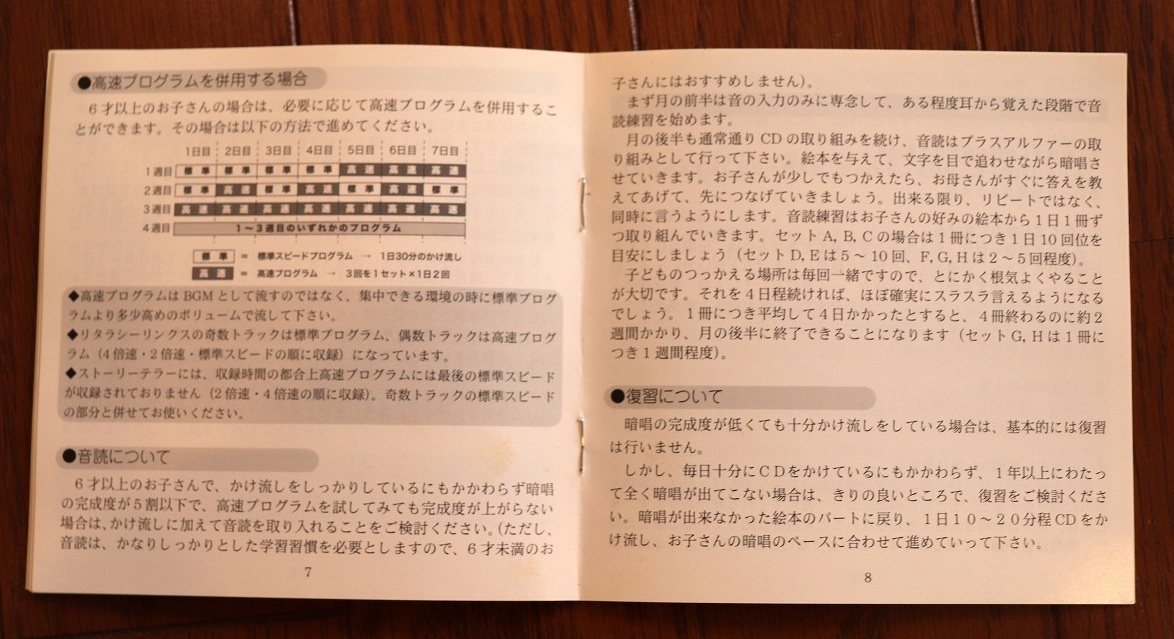 ●高速プログラムを併用する場合
６才以上のお子さんの場合は、必要に応じて高速プログラムを併用するこ
とができます。その場合は以下の方法で進めてください。
1日目 2日目 3日目 4日目 5日目 6日目 7日目
1週目 標準 標準 標準 標準 高速 高速 高速
2週目 標準 高速 標準 高速 標準 高速 標準
3週目 高速 高速 高速 高速 高速 高速 高速
4週目 1〜3週目のいずれかのプログラム
標準 ＝ 標準スピードプログラム → 1日30分のかけ流し
高速 ＝ 高速プログラム → 3回を1セット×1日2回
◆高速プログラムはBGMとして流すのではなく、集中できる環境の時に標準プログ
ラムより多少高めのボリュームで流して下さい。
◆リタラシーリンクスの奇数トラックは標準プログラム、偶数トラックは高速プログ
ラム（4倍速・2倍速・標準スピードの順に収録）になっています。
◆ストーリーテラーには、収録時間の都合上高速プログラムには最後の標準スピード
が収録されておりません（2倍速・4倍速の順に収録）。奇数トラックの標準スピード
の部分と併せてお使いください。
●音読について
６才以上のお子さんで、かけ流しをしっかりしているにもかかわらず暗唱
の完成度が５割以下で、高速プログラムを試してみても完成度が上がらない
場合は、かけ流しに加えて音読を取り入れることをご検討ください。（ただし、
音読は、かなりしっかりとした学習習慣を必要としますので、６才未満のお
7
子さんにはおすすめしません）。
まず月の前半は音の入力のみに専念して、ある程度耳から覚えた段階で音
読練習を始めます。
月の後半も通常通りCDの取り組みを続け、音読はプラスアルファーの取
り組みとして行って下さい。絵本を与えて、文字を目で追わせながら暗唱さ
せていきます。お子さんが少しでもつかえたら、お母さんがすぐに答えを教
えてあげて、先につなげていきましょう。出来る限り、リピートではなく、
同時に言うようにします。音読練習はお子さんの好みの絵本から１日１冊ず
つ取り組んでいきます。セットA, B, Cの場合は１冊につき１日10回位を
目安にしましょう（セットD, Eは５〜10回、F, G, Hは２〜５回程度）。
子どものつっかえる場所は毎回一緒ですので、とにかく根気よくやること
が大切です。それを４日程続ければ、ほぼ確実にスラスラ言えるようになる
でしょう。１冊につき平均して４日かかったとすると、４冊終わるのに約２
週間かかり、月の後半に終了できることになります（セットG, Hは１冊に
つき１週間程度）。
●復習について
暗唱の完成度が低くても十分かけ流しをしている場合は、基本的には復習
は行いません。
しかし、毎日十分にＣＤをかけているにもかかわらず、１年以上にわたっ
て全く暗唱が出てこない場合は、きりの良いところで、復習をご検討くださ
い。暗唱が出来なかった絵本のパートに戻り、１日１０〜２０分程CDをか
け流し、お子さんの暗唱のペースに合わせて進めていって下さい。
8